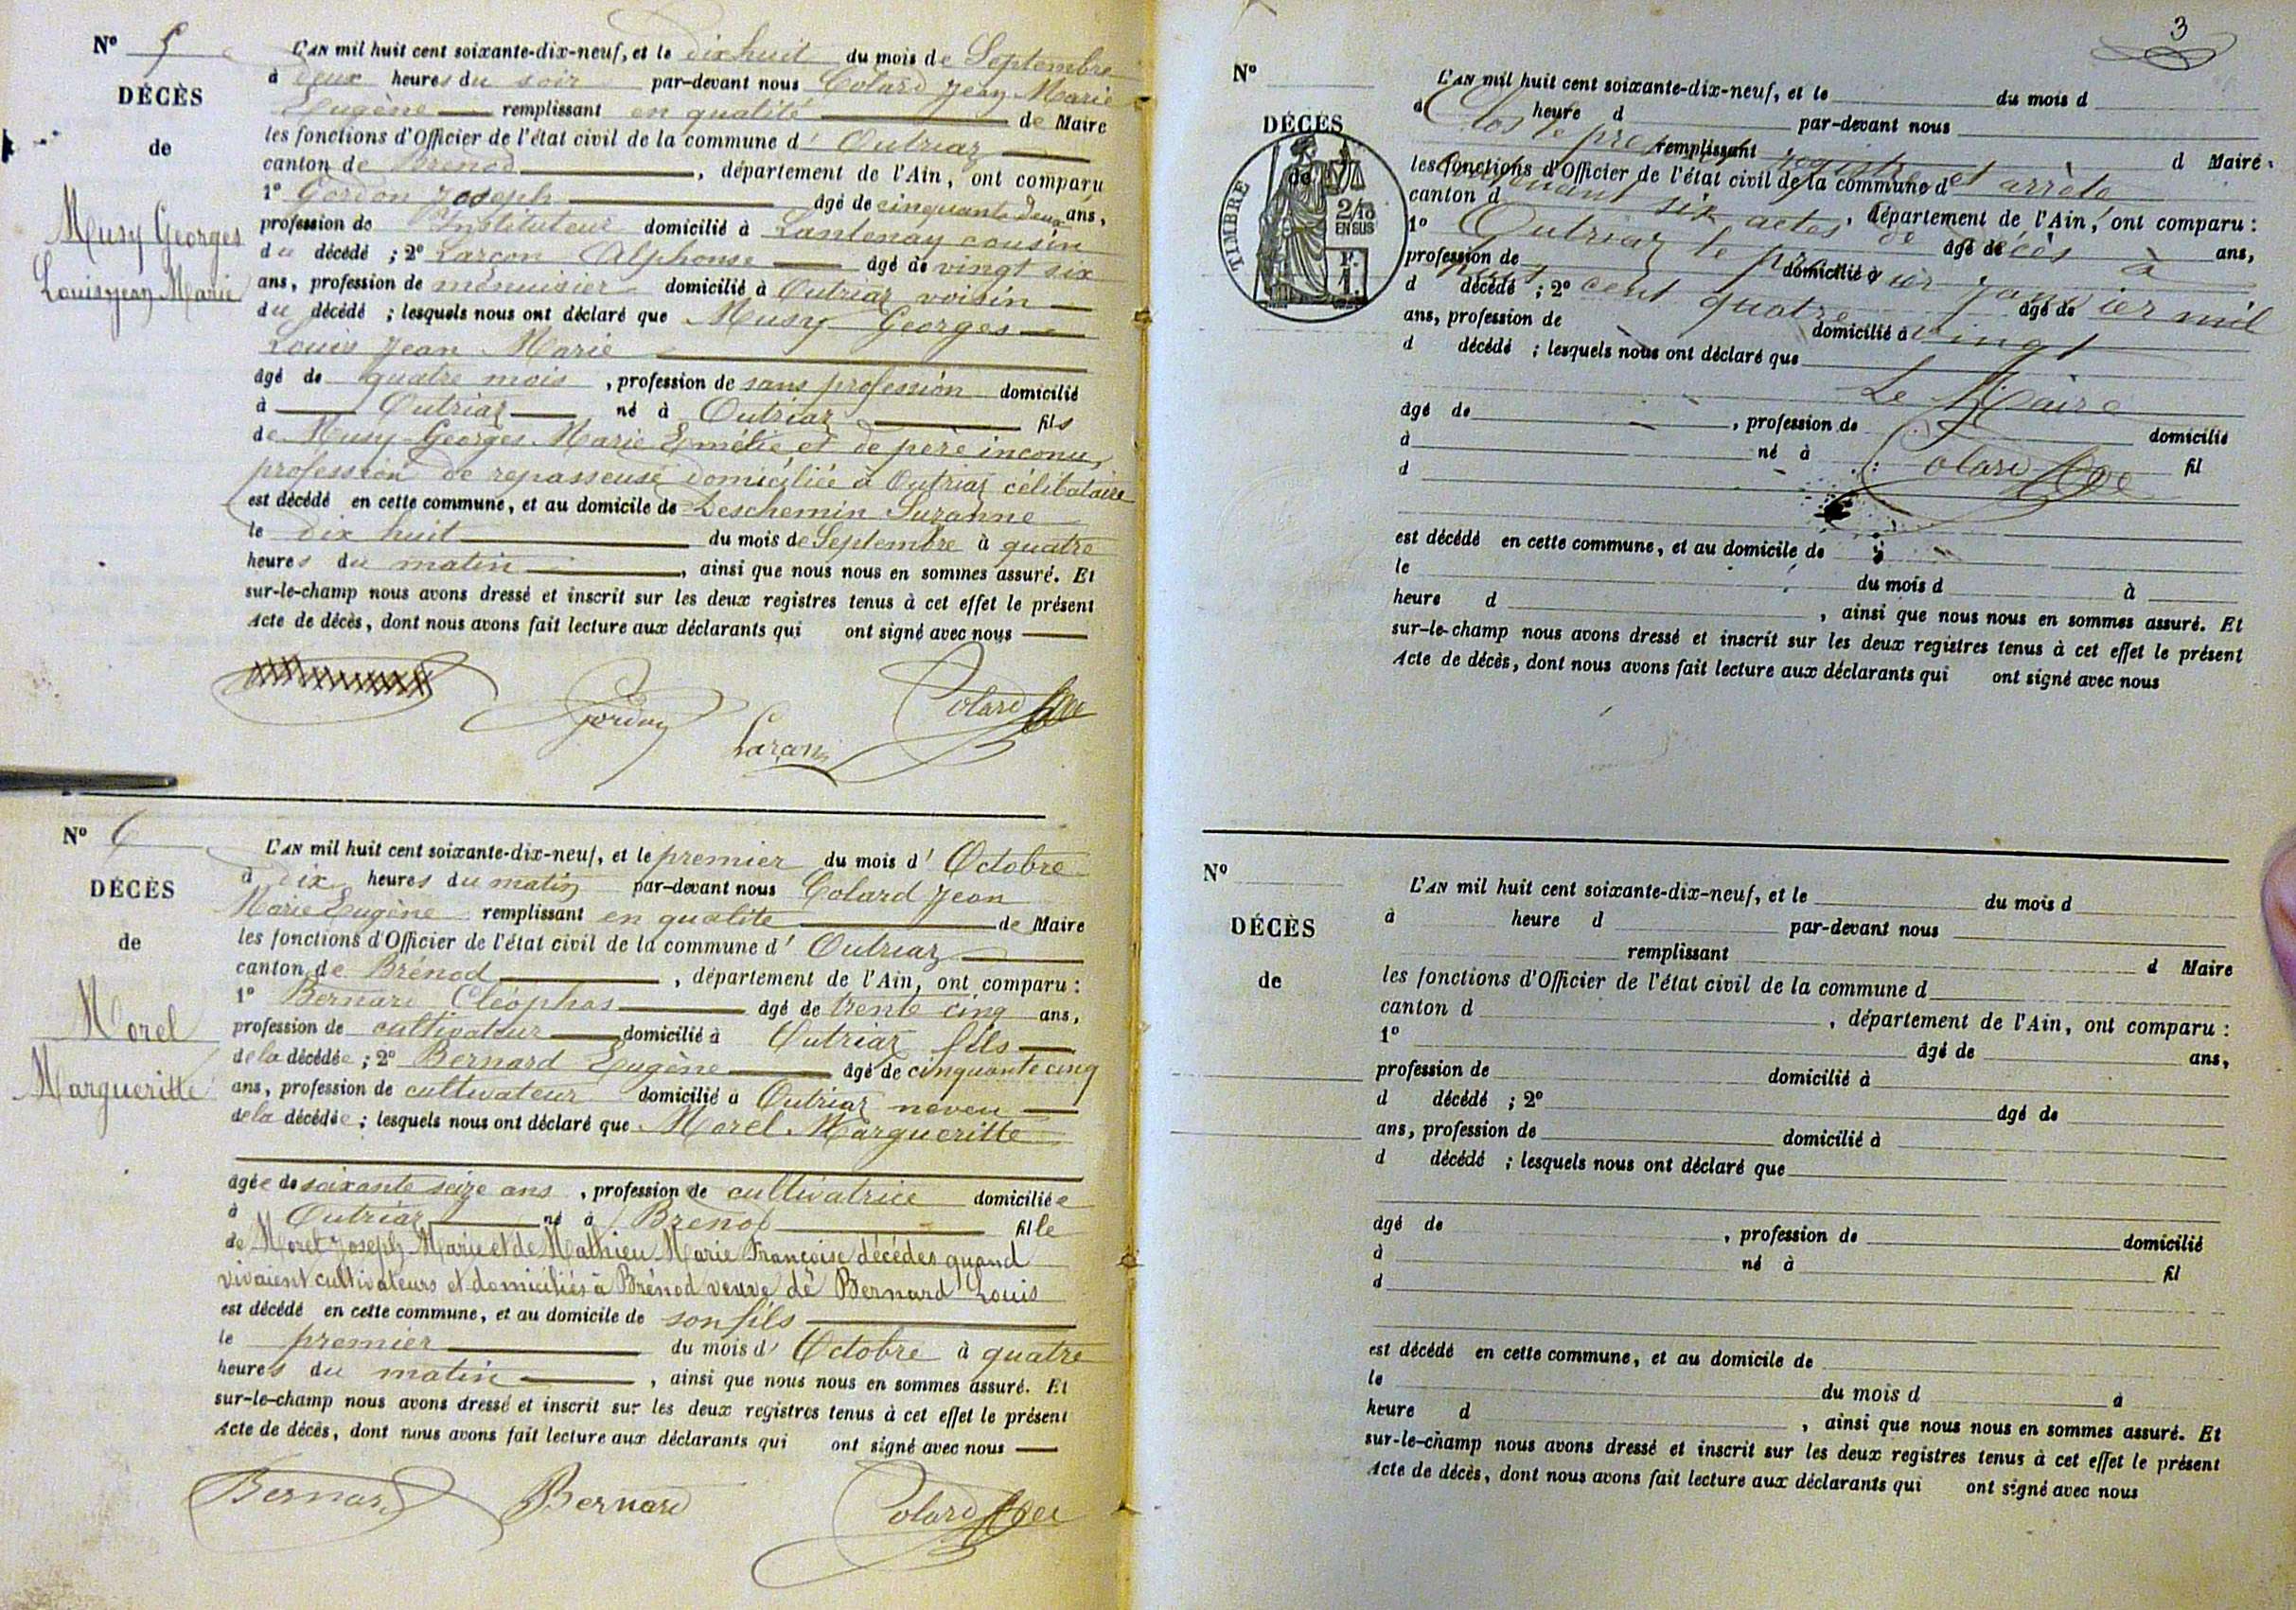 N° 5
DÉCÈS
de
Musy Georges
Louis Jean Marie
L'AN mil huit cent soixante-dix-neuf, et le dix huit du mois de Septembre
à deux heures du soir par-devant nous Colard Jean Marie
Eugène remplissant en qualité de Maire
les fonctions d'Officier de l'état civil de la commune d' Outriaz
canton de Brénod, département de l'Ain, ont comparu
1° Gordon Joseph âgé de cinquante deux ans,
profession de Instituteur domicilié à Lantenay cousin
du décédé ; 2° Larçon Alphonse âgé de vingt six
ans, profession de menuisier domicilié à Outriaz voisin
du décédé ; lesquels nous ont déclaré que Musy Georges
Louis Jean Marie
âgé de quatre mois, profession de sans profession domicilié
à Outriaz né à Outriaz fils
de Musy Georges Marie Emélie et de père inconu,
profession de repasseuse domiciliée à Outriaz célibataire
est décédé en cette commune, et au domicile de Deschemin Suzanne
le dix huit du mois de Septembre à quatre
heures du matin, ainsi que nous nous en sommes assuré. Et
sur-le-champ nous avons dressé et inscrit sur les deux registres tenus à cet effet le présent
Acte de décès, dont nous avons fait lecture aux déclarants qui ont signé avec nous
Gordon Colard
N° 6
DÉCÈS
de
Morel
Margueritte
L'AN mil huit cent soixante-dix-neuf, et le premier du mois d' Octobre
à dix heures du matin par-devant nous Colard Jean
Marie Eugène remplissant en qualité de Maire
les fonctions d'Officier de l'état civil de la commune d' Outriaz
canton de Brénod, département de l'Ain, ont comparu :
1° Bernard Cléophas âgé de trente cinq ans,
profession de cultivateur domicilié à Outriaz fils
de la décédée ; 2° Bernard Eugène âgé de cinquante cinq
ans, profession de cultivateur domicilié à Outriaz neveu
de la décédée ; lesquels nous ont déclaré que Morel Margueritte
âgée de soixante seize ans, profession de cultivatrice domiciliée
à Outriaz né à Brénod fille
de Morel Joseph Marie et de Mathieu Marie Françoise décédés quand
vivaient cultivateurs et domiciliés à Brénod veuve de Bernard Louis
est décédé en cette commune, et au domicile de son fils
le premier du mois d' Octobre à quatre
heures du matin, ainsi que nous nous en sommes assuré. Et
sur-le-champ nous avons dressé et inscrit sur les deux registres tenus à cet effet le présent
Acte de décès, dont nous avons fait lecture aux déclarants qui ont signé avec nous
Bernard Bernard Colard
3
N°
DÉCÈS
de
TIMBRE
2/10
EN SUS
F.
1.
L'AN mil huit cent soixante-dix-neuf, et le du mois d
à heure d par-devant nous
Clos le présent registre et arrêté
remplissant d Maire
les fonctions d'Officier de l'état civil de la commune d
contenant six actes de décès à
canton d, département de l'Ain, ont comparu :
1° âgé de ans,
Outriaz le premier janvier mil
profession de domicilié à
huit cent quatre vingt
d décédé ; 2° âgé de
ans, profession de domicilié à
d décédé ; lesquels nous ont déclaré que
Le Maire
âgé de, profession de domicilié
à né à fil
Colard
d
est décédé en cette commune, et au domicile de
le du mois d à
heure d, ainsi que nous nous en sommes assuré. Et
sur-le-champ nous avons dressé et inscrit sur les deux registres tenus à cet effet le présent
Acte de décès, dont nous avons fait lecture aux déclarants qui ont signé avec nous
N°
DÉCÈS
de
L'AN mil huit cent soixante-dix-neuf, et le du mois d
à heure d par-devant nous
remplissant d Maire
les fonctions d'Officier de l'état civil de la commune d
canton d, département de l'Ain, ont comparu :
1° âgé de ans,
profession de domicilié à
d décédé ; 2° âgé de
ans, profession de domicilié à
d décédé ; lesquels nous ont déclaré que
âgé de, profession de domicilié
à né à fil
d
est décédé en cette commune, et au domicile de
le du mois d à
heure d, ainsi que nous nous en sommes assuré. Et
sur-le-champ nous avons dressé et inscrit sur les deux registres tenus à cet effet le présent
Acte de décès, dont nous avons fait lecture aux déclarants qui ont signé avec nous